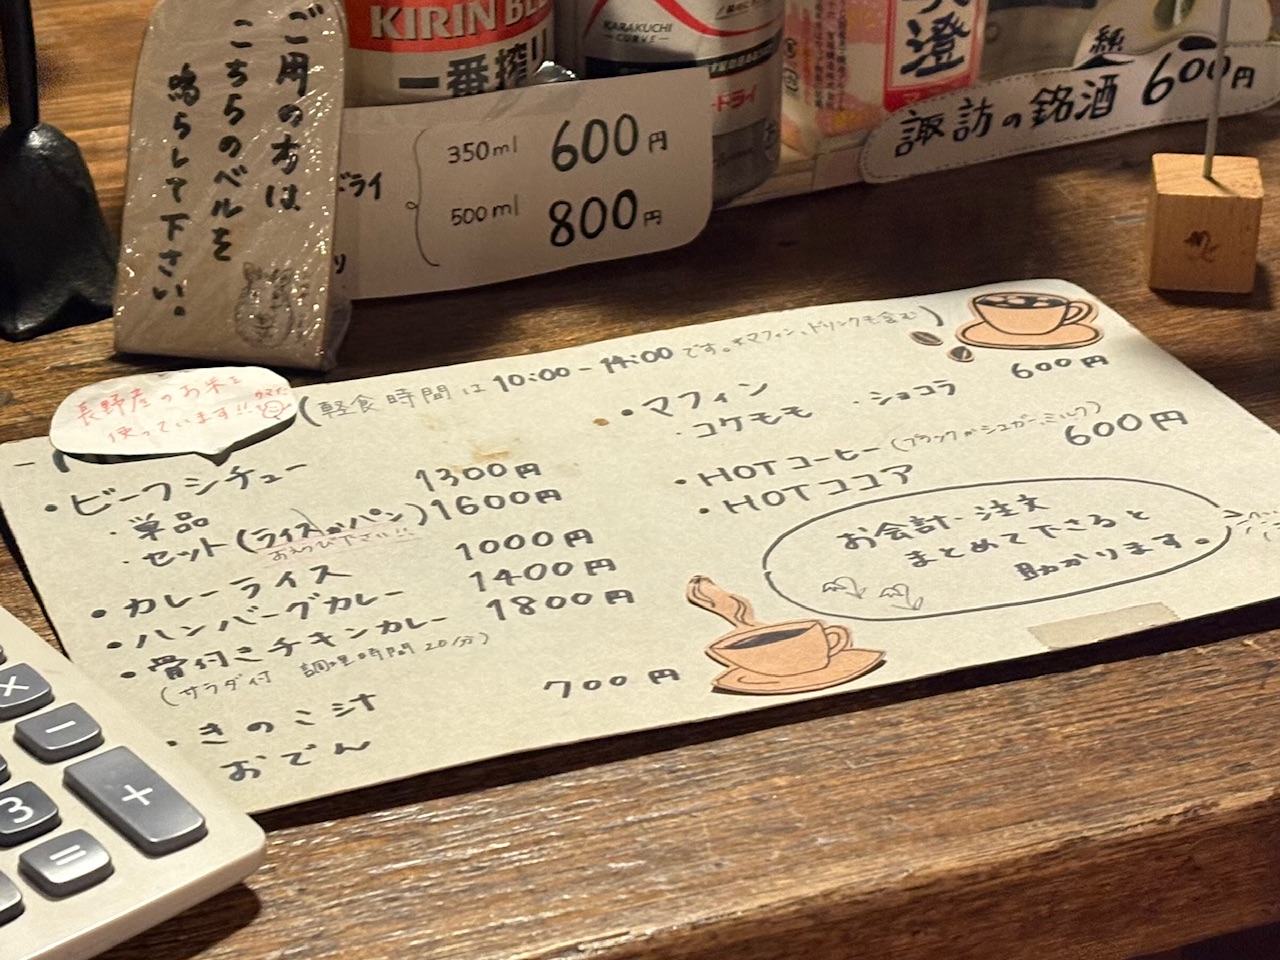 ご用の方は
こちらのベルを
鳴らして下さい。
KIRIN BE
一番搾り
KARAKUCHI
CURVE
ドライ
澄
ドライ
350ml 600円
500ml 800円
諏訪の銘酒 600円
長野産のお米を
使っています!!
(軽食時間は10:00-14:00です。※マフィン、ドリンクも含む)
・ビーフシチュー
・単品 1300円
・セット(ライスorパン) 1600円
おえらび下さい!!
・カレーライス 1000円
・ハンバーグカレー 1400円
・骨付きチキンカレー 1800円
(サラダ付 調理時間20分)
・きのこ汁 700円
おでん
・マフィン 600円
・コケモモ ・ショコラ
・HOTコーヒー(ブラックorシュガー、ミルク) 600円
・HOTココア
お会計・注文
まとめて下さると
助かります。
×
−
3
+
=